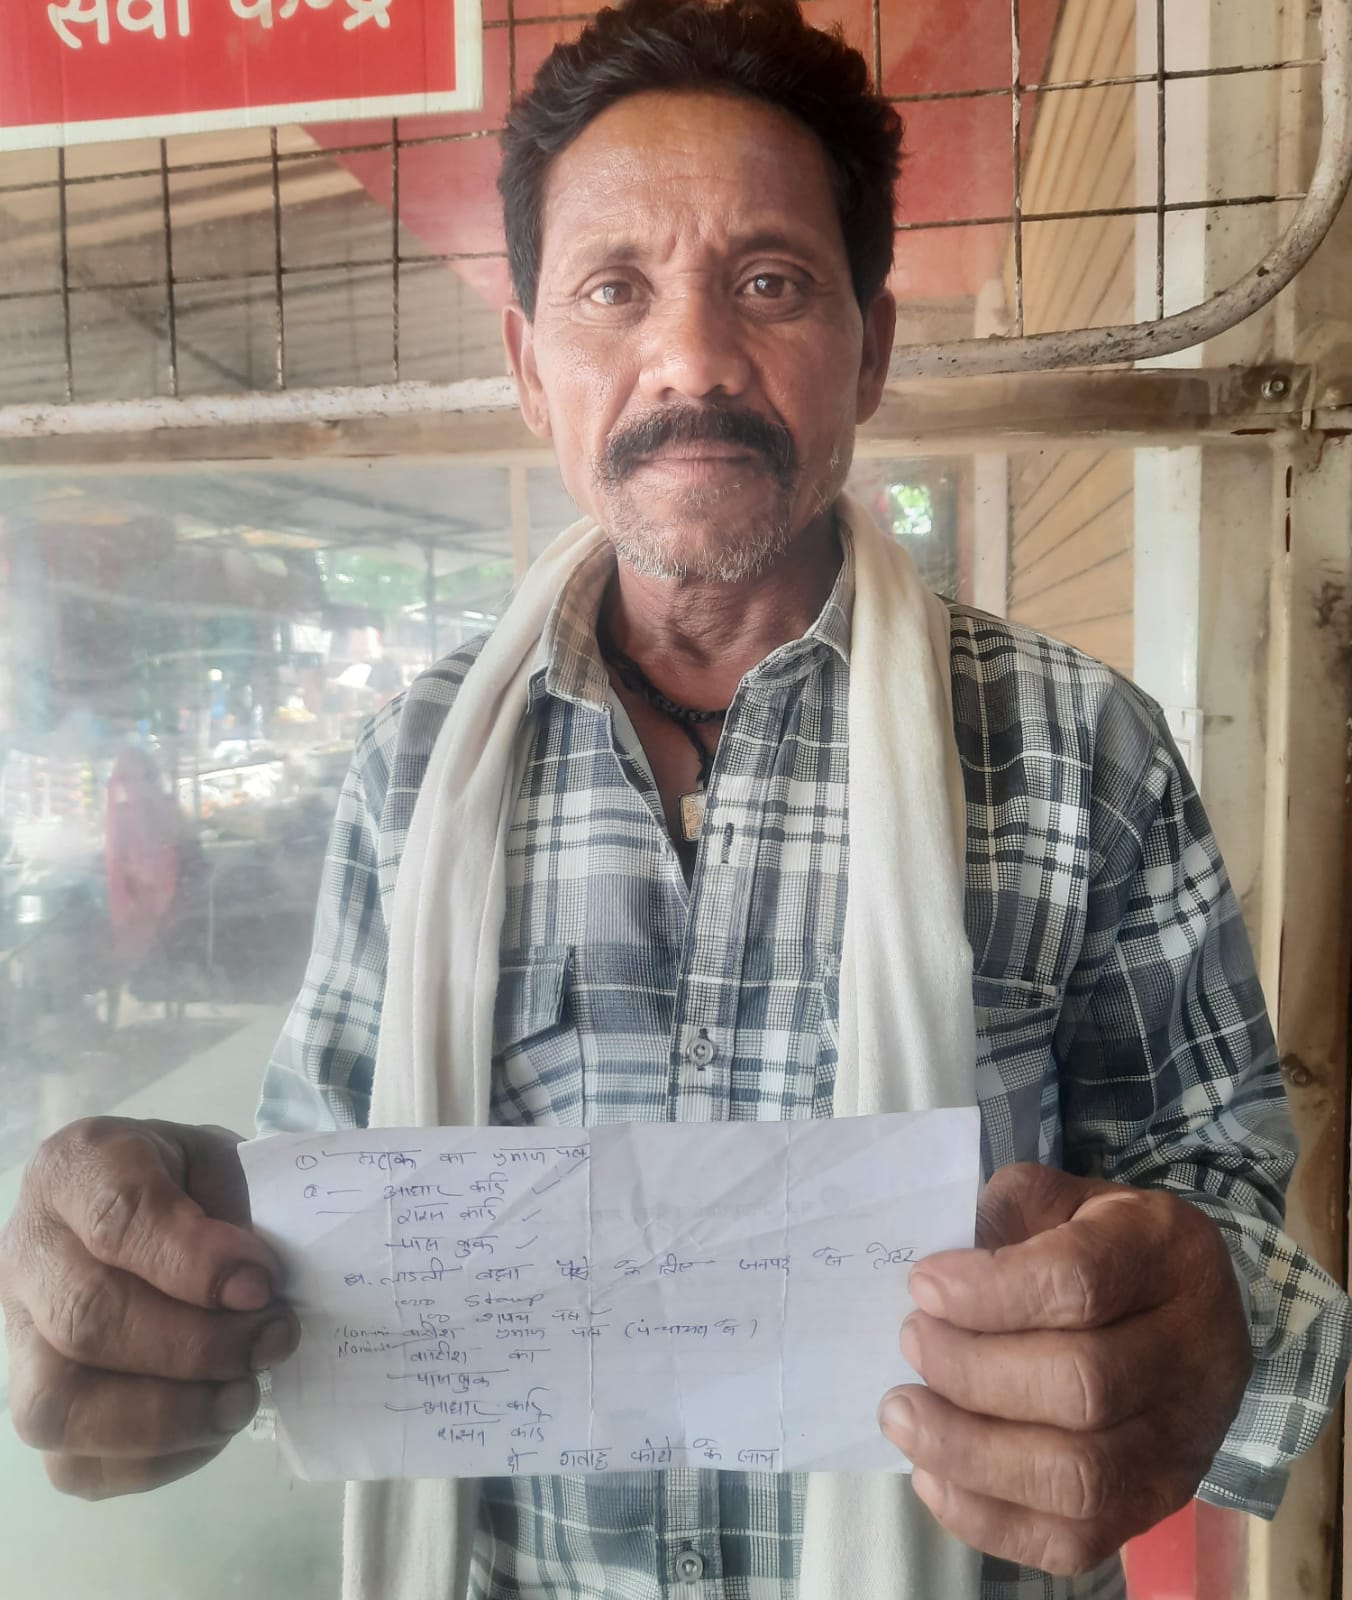 सेवा केन्द्र
① मृतक का प्रमाण पत्र
② — आधार कार्ड
राशन कार्ड
पास बुक
लाडली बहना पैसे के लिए जनपद के लेटर
1000 Stamp
100 शपथ पत्र
Nomini वारीश प्रमाण पत्र (पंचायत के)
Nominee वारीश का
पास बुक
आधार कार्ड
राशन कार्ड
दो गवाह फोटो के साथ